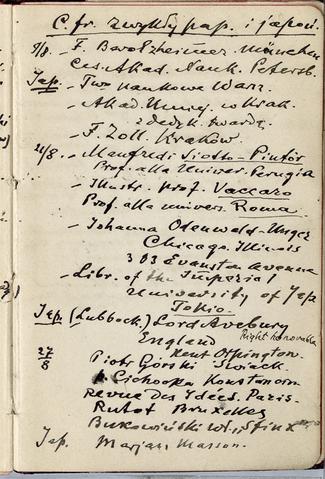 C. fr. zwykły pap. i japoń.
9/8. – F. Barolzheimer München
Ces. Akad. Nauk. Petersb.
Jap. – Two naukowe Warz.
– Akad. Umiej. w Krak.
z dedyk. twardą
– F. Zoll. Kraków.
21/8. – Manfredi Siotto-Pintór
Prof. alla Univer. Perugia
– Illustr. prof. Vaccaro
Prof. alla univers. Roma
– Johanna Odenwald-Unger
Chicago. Illinois
303 Evanston Avenue
– Libr. of the Imperial
University of Jap.
Tokio.
Jap. (Lubbock.) Lord Avebury
Right honorable
England
Kent Orpington.
27/8 Piotr Górski
Cichocka Konstancin
Revue des Idées. Paris.
Rutot Bruxelles
Bukowiński Wł. „Sfinx"
Jap. Marjan Masson.